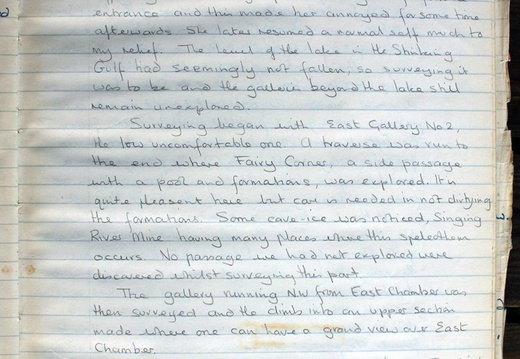 entrance and this made her annoyed for some time
afterwards. She later resumed a normal self much to
my relief. The level of the lake in the Shrinking
Gulf had seemingly not fallen, so surveying it
was to be and the galleries beyond the lake still
remain unexplored.
Surveying began with East Gallery No 2,
the low uncomfortable one. A traverse was run to
the end where Fairy Corner, a side passage
with a pool and formations, was explored. It is
quite pleasent here but care is needed in not dirtying
the formations. Some cave-ice was noticed, Singing
River Mine having many places where this speleothem
occurs. No passage we had not explored were
discovered whilst surveying this part.
The gallery running NW from East Chamber was
then surveyed and the climb into an upper section
made where one can have a grand view over East
Chamber.